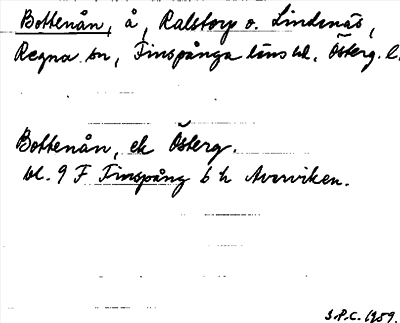 Bottenån, å, Ralstorp o. Lindenäs,
Regna sn, Finspånga läns hd, Österg. l.
Bottenån, ek Österg.
bl. 9 F Finspång b h Averviken.
S.P.C. 1959.